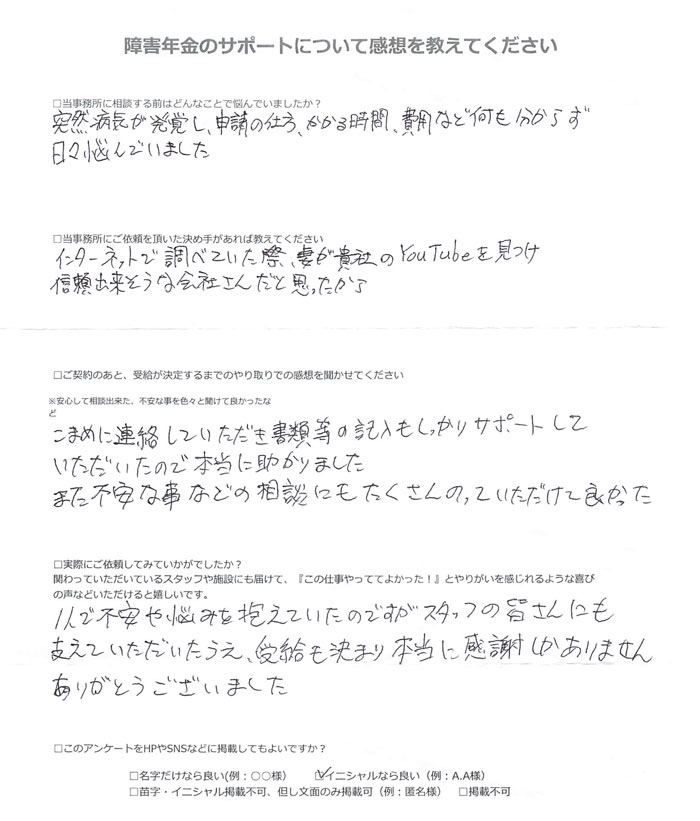 障害年金のサポートについて感想を教えてください
□当事務所に相談する前はどんなことで悩んでいましたか？
突然病気が発覚し、申請の仕方、かかる時間、費用など何も分からず
日々悩んでいました
□当事務所にご依頼を頂いた決め手があれば教えてください
インターネットで調べていた際、妻が貴社のYouTubeを見つけ
信頼出来そうな会社さんだと思ったから
□ご契約のあと、受給が決定するまでのやり取りでの感想を聞かせてください
※安心して相談出来た、不安な事を色々と聞けて良かったな
ど
こまめに連絡していただき書類等の記入もしっかりサポートして
いただいたので本当に助かりました
また不安な事などの相談にもたくさんのっていただけて良かった
□実際にご依頼してみていかがでしたか？
関わっていただいているスタッフや施設にも届けて、『この仕事やっててよかった！』とやりがいを感じれるような喜び
の声などいただけると嬉しいです。
1人で不安や悩みを抱えていたのですがスタッフの皆さんにも
支えていただいたうえ、受給も決まり本当に感謝しかありません
ありがとうございました
□このアンケートをHPやSNSなどに掲載してもよいですか？
□名字だけなら良い(例：〇〇様) ☑イニシャルなら良い（例：A.A様）
□苗字・イニシャル掲載不可、但し文面のみ掲載可（例：匿名様） □掲載不可